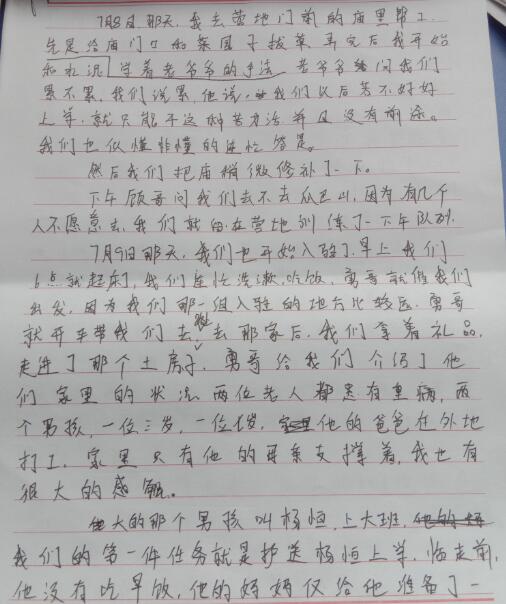 7月8日那天,我去营地门前的庙里帮工,
先是给庙门口和菜园子拔草,弄完后我开始
和水泥,学着老爷爷的手法,老爷爷问我们
累不累,我们说累,他说,我们以后若不好好
上学,就只能干这种苦力活并且没有前途。
我们也似懂非懂的连忙答是。
然后我们把庙稍微修补了一下。
下午顾哥问我们去不去爪巴山,因为有几个
人不愿意去,我们就留在营地训练了一下午队列。
7月9日那天,我们也开始入驻了,早上我们
6点就起床了,我们连忙洗漱,吃饭,勇哥就催我们
出发,因为我们那一组入驻的地方比较远,勇哥
就开车带我们去,去那家后,我们拿着礼品,
走进了那个土房子,勇哥给我们介绍了他
们家里的状况,两位老人都患有重病,两
个男孩,一位三岁,一位岁,他的爸爸在外地
打工,家里只有他的母亲支撑着,我也有
很大的感触。
大的那个男孩叫杨恒,上大班,
我们的第一件任务就是护送杨恒上学,临走前,
他没有吃早饭,他的妈妈仅给他准备了一